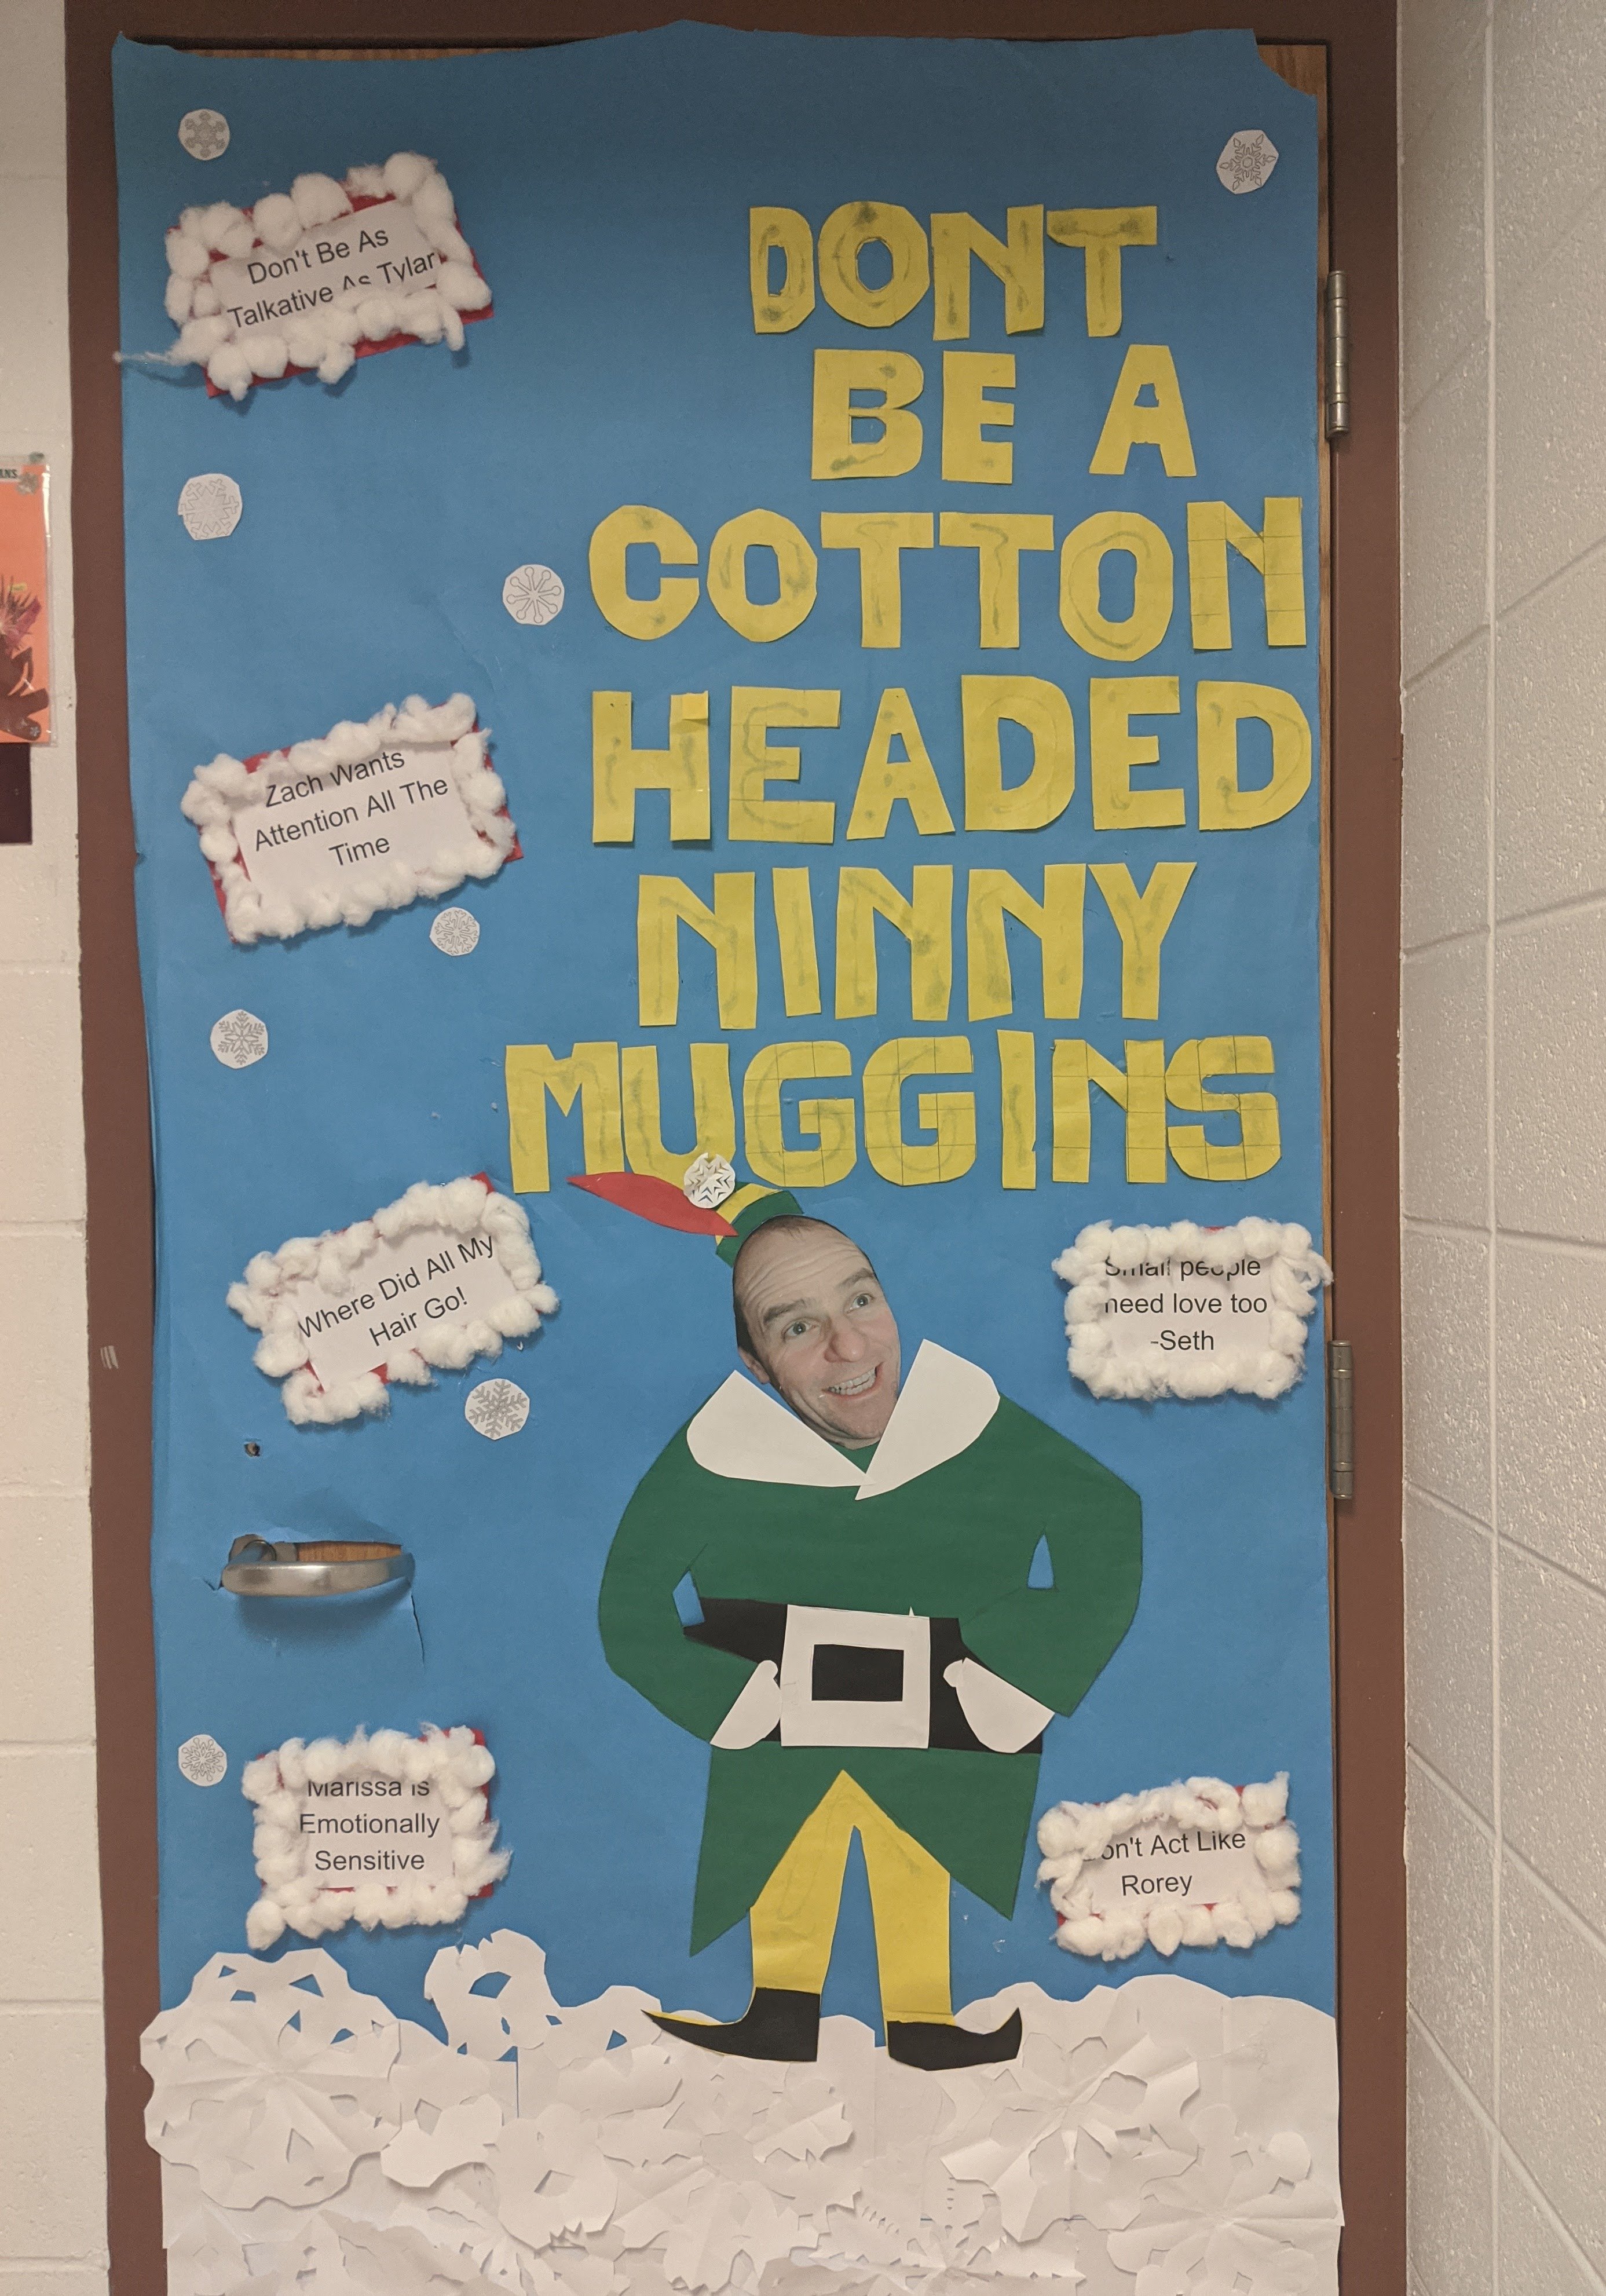 DONT
BE A
COTTON
HEADED
NINNY
MUGGINS
Don't Be As
Talkative As Tylar
Zach Wants
Attention All The
Time
Where Did All My
Hair Go!
Small people
need love too
-Seth
Marissa is
Emotionally
Sensitive
Don't Act Like
Rorey